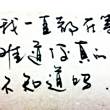 我一直都在等
难道你真的
不知道吗